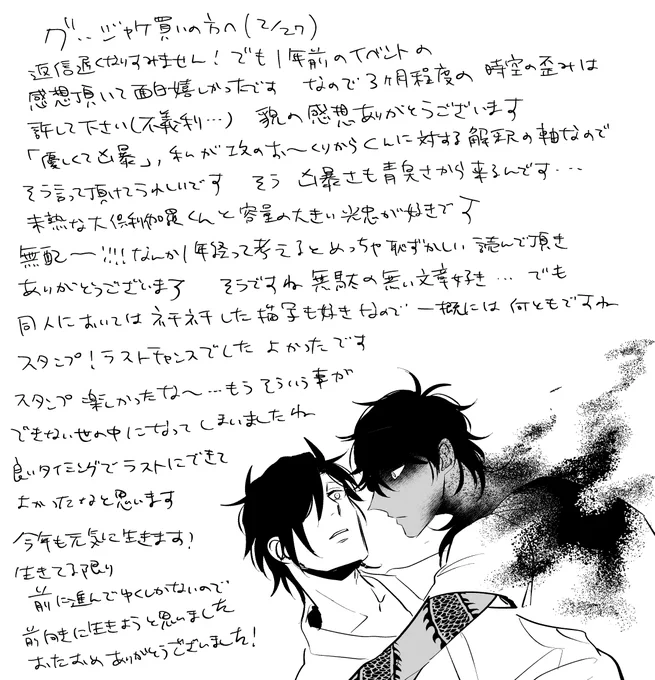 グ…ジャケ買いの方へ(2/27)
返信遅くなりすみません!でも1年前のイベントの
感想頂いて面白嬉しかったです なので3ヶ月程度の時空の歪みは
許して下さい(不義利…) 貌の感想ありがとうございます
「優しくて凶暴」、私が攻のお〜くりからくんに対する解釈の軸なので
そう言って頂けてうれしいです そう 凶暴さも青臭さから来るんです…
未熟な大倶利伽羅くんと容量の大きい光忠が好きです
無配〜!!!!なんか1年経って考えるとめっちゃ恥ずかしい 読んで頂き
ありがとうございます そうですね無駄の無い文章好き… でも
同人においてはネチネチした描写も好きなので一概には何ともですね
スタンプ!ラストチャンスでした よかったです
スタンプ楽しかったな〜…もうそういう事が
できない世の中になってしまいましたね
良いタイミングでラストにできて
よかったなと思います
今年も元気に生きます!
生きてる限り
前に進んでゆくしかないので
前向きに生きようと思いました
おたおめありがとうございました!